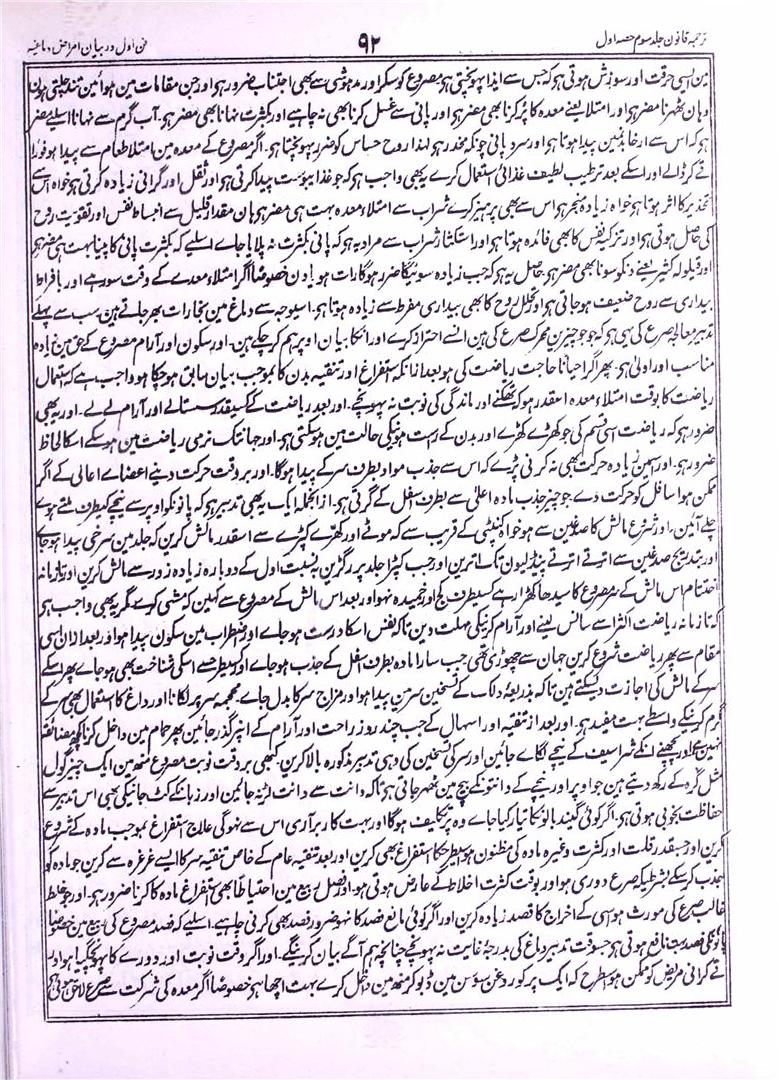 ترجمہ قانون جلد سوم حصہ اول ۹۲ فن اول در بیان امراض دماغیہ
مین ایسی حرقت اور سوزش ہوتی ہو کہ جس سے ایذا پہونچتی ہو مصروع کو سکر اور مدہوشی سے بھی اجتناب ضرور ہو اور جن مقامات مین ہوائین تند چلتی ہون
وہان ٹھہرنا مضر ہو اور امتلا یعنے معدہ کا پُر کرنا بھی مضر ہو اور پانی سے غسل کرنا بھی نہ چاہیے اور بکثرت نہانا بھی مضر ہو۔ آب گرم سے نہانا اسلیے مضر
ہو کہ اس سے ارخا بدنمین پیدا ہوتا ہو اور سرد پانی چونکہ مخدر ہو لہذا روح حساس کو ضرر پہونچتا ہو۔ اگر مصروع کے معدہ مین امتلا طعام سے پیدا ہو فورا
قے کر ڈالے اور اسکے بعد ترطیب لطیف غذائی استعمال کرے یہ بھی واجب ہو کہ جو غذا یبوست پیدا کرتی ہو اور ثقل اور گرانی زیادہ کرتی ہو خواہ اس سے
تخدیر کا اثر ہوتا ہو خواہ زیادہ مبخر ہو اس سے بھی پرہیز کرے شراب سے امتلاء معدہ بہت ہی مضر ہو ہان مقدار قلیل سے انبساط نفس اور تقویت روح
کی حاصل ہوتی ہو اور تزکیہ نفس کا بھی فائدہ ہوتا ہو اور استکثار شراب سے مراد یہ ہو کہ پانی بکثرت نہ پلایا جاے اسلیے کہ بکثرت پانی کا پینا بہت ہی مضر ہو
اور قیلولہ کثیر یعنے دنکو سونا بھی مضر ہو حاصل یہ ہو کہ جب زیادہ سوئیگا ضرر ہوگا رات ہو یا دن خصوصا اگر امتلاء معدے کے وقت سورہے اور بافراط
بیداری سے روح ضعیف ہو جاتی ہو اور تحلل روح کا بھی بیداری مفرط سے زیادہ ہوتا ہو۔ اسیوجہ سے دماغ مین بخارات بھر جاتے ہین۔ سب سے پہلے
تدبیر معالجہ صرع کی یہی ہو کہ جو چیزین محرک صرع کی ہین انسے احتراز کرے اور انکا بیان اوپر ہم کر چکے ہین۔ اور سکون اور آرام مصروع کے حق مین زیادہ
مناسب اور اولی ہو۔ پھر اگر احیانا حاجت ریاضت کی ہو بعد ازانکہ استفراغ اور تنقیہ بدن کا بموجب بیان سابق ہو چکا ہو واجب ہے کہ استعمال
ریاضت کا بوقت امتلاء معدہ اسقدر ہو کہ تھکنے اور ماندگی کی نوبت نہ پہونچے۔ اور بعد ریاضت کے کسیقدر سستالے اور آرام لے لے۔ اور یہ بھی
ضرور ہو کہ ریاضت اسی قسم کی جو کھڑے کھڑے اور بدن کے راست ہونیکی حالت مین ہو سکتی ہو۔ اور جہانتک نرمی ریاضت مین ہو سکے اسکا لحاظ
ضرور ہو۔ اور ایسی زیادہ حرکت بھی نہ کرنی پڑے کہ اس سے جذب مواد بطرف سر کے پیدا ہوگا۔ اور بروقت حرکت دینے اعضاے اعالی کے اگر
ممکن ہو اسافل کو حرکت دے۔ جو چیز جذب مادہ اعلی سے بطرف اسفل کے کرتی ہو۔ از انجملہ ایک یہ بھی تدبیر ہو کہ پانونکو اوپر سے نیچے کیطرف ملتے ہوے
چلے آئین۔ اور شروع مالش کا صدغین سے ہو خواہ کنپٹی کے قریب سے کہ موٹے اور کھرے کپڑے سے اسقدر مالش کرین کہ جلد مین سرخی پیدا ہو جاے
اور بتدریج صدغین سے اترتے اترتے پنڈلیون تک اترین اور جب کپڑا جلد پر رگڑین بہ نسبت اول کے دوبارہ زیادہ زور سے مالش کرین اور تا زمانہ
اختتام اس مالش کے سر مصروع کا سیدھا کھڑا رہے کسیطرف کج اور خمیدہ نہو اور بعد اس مالش کے مصروع سے کہین کہ مشی کرے مگر یہ بھی واجب ہو
کہ تا زمانہ ریاضت اکثر اسے سانس لینے اور آرام کرنیکی مہلت دین تاکہ نفس اسکا درست ہو جاے اور اضطراب مین سکون پیدا ہو اور بعد ازان اسی
مقام سے پھر ریاضت شروع کرین جہان سے چھوڑی تھی جب سارا مادہ بطرف اسفل کے جذب ہو جاے اور کسیطرح سے اسکی شناخت بھی ہو جاے پھر اسکے
سر کے مالش کی اجازت دیسکتے ہین تاکہ بذریعہ دلاک کے تسخین سر مین پیدا ہو اور مزاج سر کا بدل جاے۔ محجمہ سر پر لگانا اور داغ کا استعمال بھی سر کے
گرم کرنیکے واسطے بہت مفید ہو۔ اور بعد از تنقیہ اور اسہال کے جب چند روز راحت اور آرام کے اسپر گذر جائین پھر حمام مین داخل کرنا کچھ مضائقہ
نہین ہو اور پچھنے انکے شراسیف کے نیچے لگاے جائین اور سر کی تسخین کی وہی تدبیر مذکورہ بالا کرین۔ کبھی بروقت نوبت مصروع منھ مین ایک چیز گول
مثل گرہ کے رکھ دیتے ہین جو اوپر اور نیچے کے دانتونکے بیچ مین ٹھہر جاتی ہو تاکہ دانت سے دانت لڑ نہ جائین اور زبانکے کٹ جانیکی بھی اس تدبیر سے
حفاظت بخوبی ہوتی ہو۔ اگر کوئی گیند بالونکا تیار کیا جاے وہ پر تکلیف ہوگا اور بہت کار برآری اس سے نہوگی علاج استفراغ بموجب مادہ کے شروع
کرین اور جسقدر قلت اور کثرت وغیرہ مادہ کی مظنون ہو اسیطرحکا استفراغ بھی کرین اور بعد تنقیہ عام کے خاص تنقیہ سر کا ایسے غرغرہ سے کرین جو مادہ کو
جذب کر سکے بشرطیکہ صرع دوری ہو اور بوقت کثرت اخلاط کے عارض ہوتی ہو۔ اور فصل ربیع مین احتیاطا بھی استفراغ مادہ کا کرنا ضرور ہو۔ اور جو خلط
غالب صرع کی مورث ہو اسی کے اخراج کا قصد زیادہ کرین اور اگر کوئی مانع فصد کا نہو ضرور فصد بھی کرنی چاہیے۔ اسلیے کہ فصد مصروع کی ربیع مین خصوصا
پانونکی فصد بہت نافع ہوتی ہو جسوقت تدبیر داغ کی بدرجہ غایت نہ پہونچے چنانچہ ہم آگے بیان کرینگے۔ اور اگر وقت نوبت اور دورے کا پہونچ گیا ہو اور
قے کرانی مریض کو ممکن ہو اسطرح کہ ایک پر کو روغن سوسن مین ڈبو کر منھ مین داخل کرے بہت اچھا ہو خصوصا اگر معدہ کی شرکت سے صرع لاحق ہوئی ہو